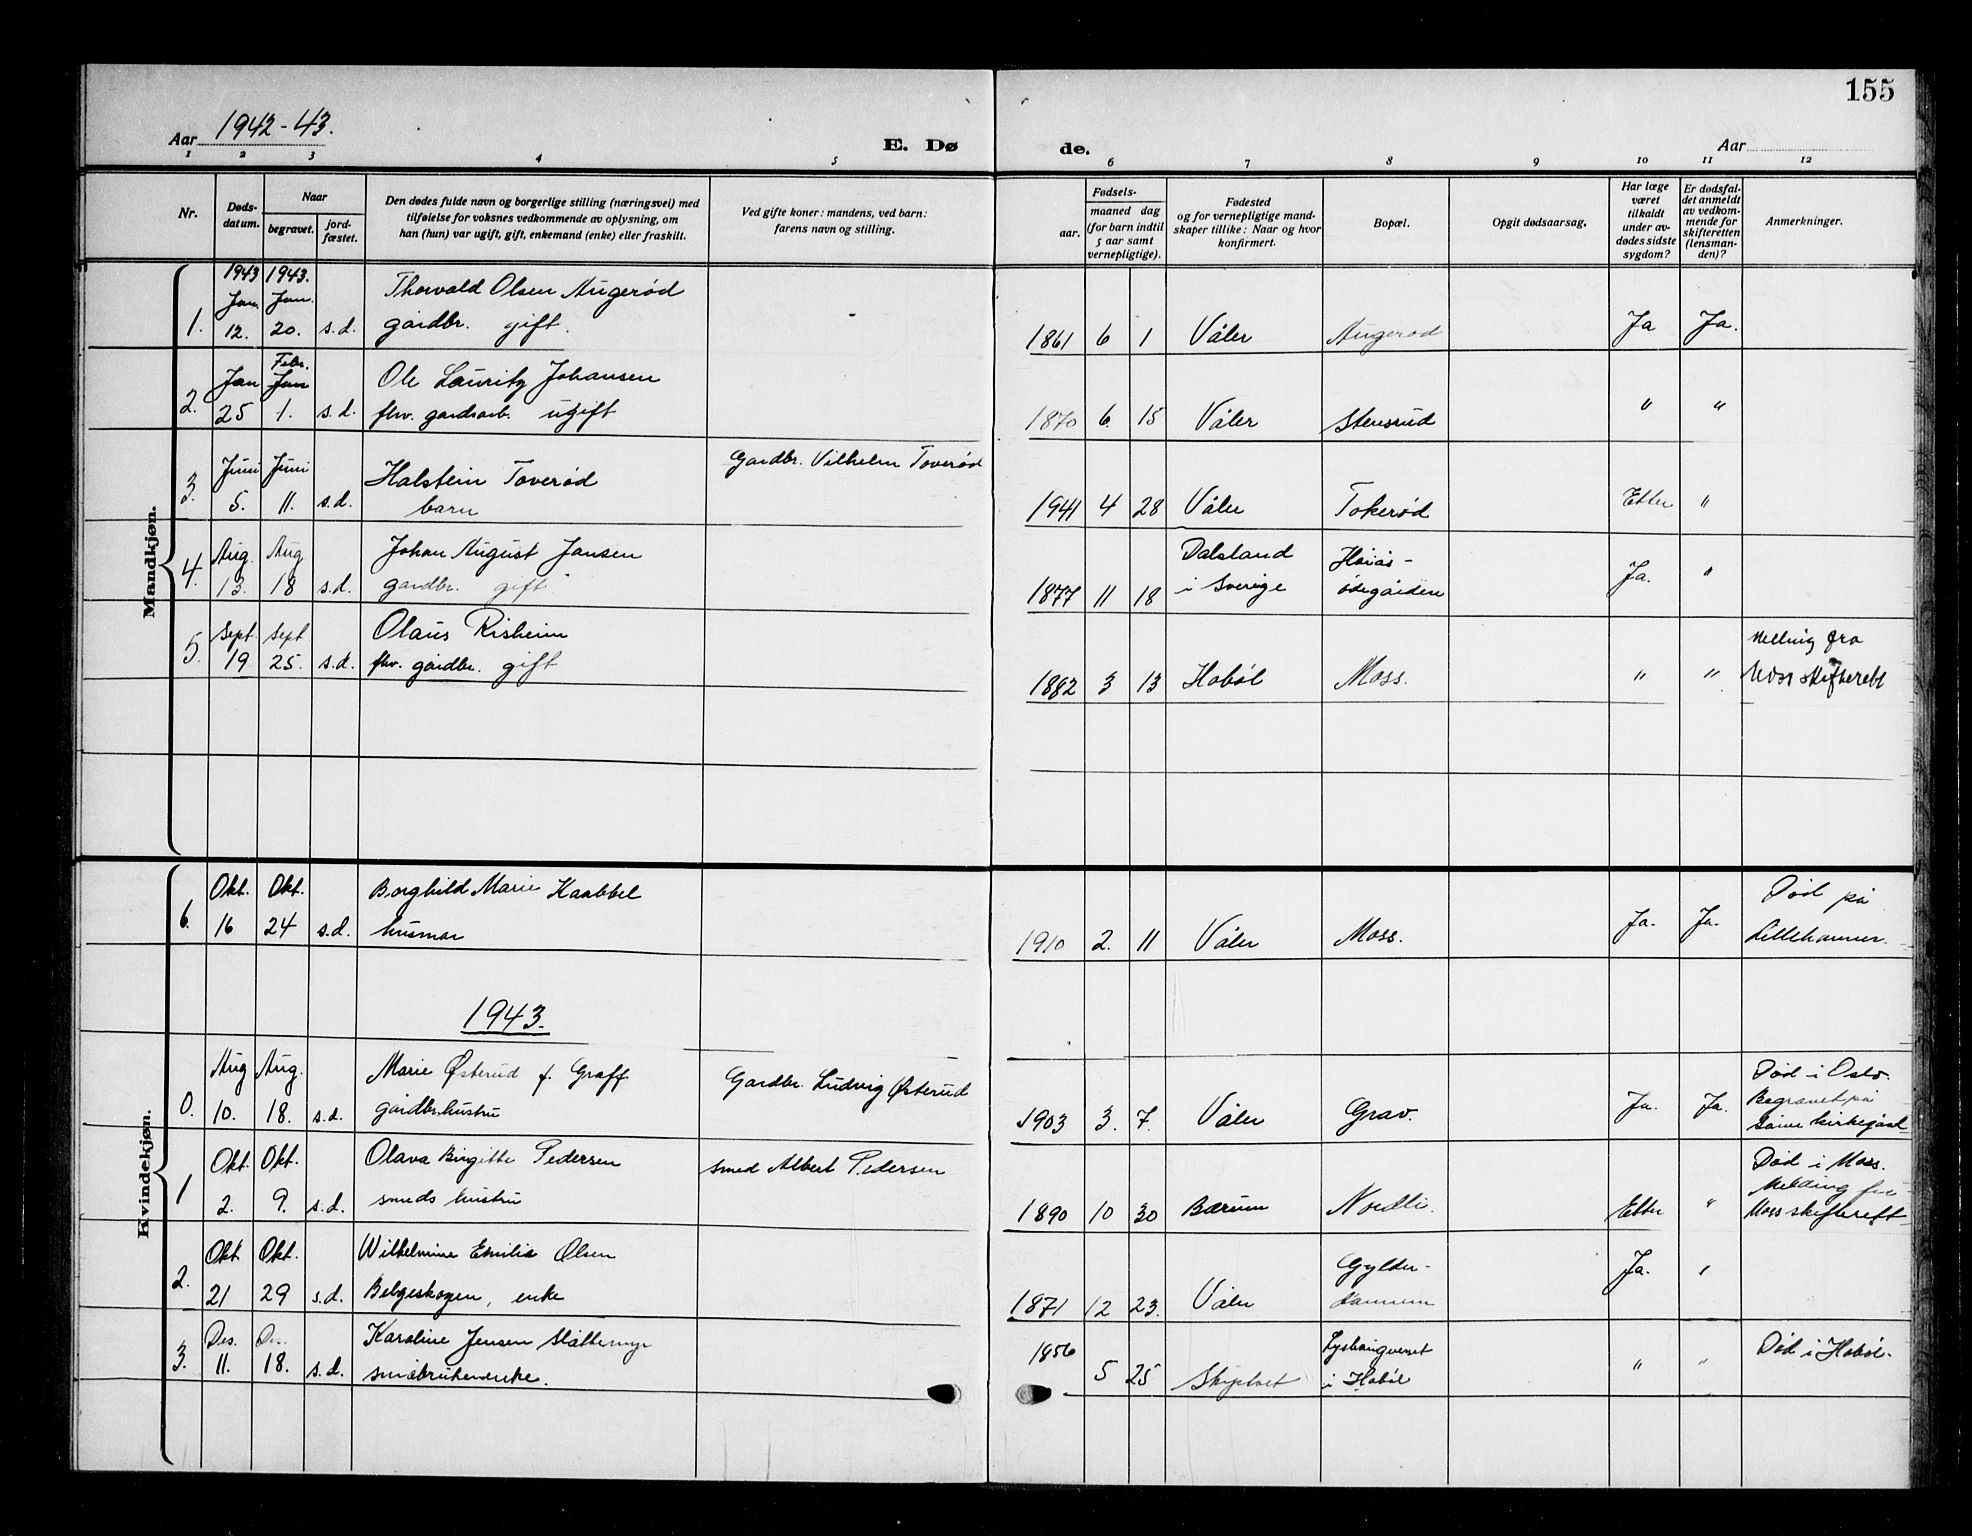 155
Aar 1942-43.
E. Dø de.
Aar
1 2 3 4 5 6 7 8 9 10 11 12
Nr.
Døds-
datum.
Naar
begravet.
jord-
fæstet.
Den dødes fulde navn og borgerlige stilling (næringsvei) med
tilføielse for voksnes vedkommende av oplysning, om
han (hun) var ugift, gift, enkemand (enke) eller fraskilt.
Ved gifte koner: mandens, ved barn:
farens navn og stilling.
Fødsels-
aar.
maaned dag
(for barn indtil
5 aar samt
vernepligtige).
Fødested
og for vernepligtige mand-
skaper tillike: Naar og hvor
konfirmert.
Bopæl.
Opgit dødsaarsag,
Har læge
været
tilkaldt
under av-
dødes sidste
sygdom?
Er dødsfal-
det anmeldt
av vedkom-
mende for
skifteretten
(lensman-
den)?
Anmerkninger.
Mandkjøn.
1943 1943.
Jan. Jan. Thorvald Olsen Augerød
1. 12. 20. s.d. gårdbr. gift. 1861 6 1 Våler Augerød Ja Ja.
Febr.
Jan Jan Ole Lauritz Johansen
2. 25 1. s.d. fhv. gardsarb. ugift 1870 6. 15 Våler Stensrud " "
Juni Juni Halstein Toverød Gardbr. Vilhelm Toverød
3. 5. 11. s.d. barn 1941 4 28 Våler Tokerød Etter "
Aug. Aug Johan August Jansen Dalsland Høiås-
4. 13. 18 s.d. gardbr. gift i Sverige ødegården 1877 11 18 Ja. "
Sept. Sept Olaus Risheim Melding fra
5. 19 25. s.d. fhv. gårdbr. gift 1882 3 13 Hobøl Moss. " " Moss skifterett
Kvindekjøn.
Okt. Okt. Borghild Marie Kaabbel Død på
6. 16 24 s.d. husmor 1910 2. 11 Våler Moss. Ja. Ja. Lillehammer.
1943.
Aug Aug. Marie Østerud f. Graff Gardbr. Ludvig Østerud Død i Oslo.
0. 10. 18. s.d. gårdbr.hustru 1903 3. 7. Våler Grav. Ja. Ja. Begravet på
kirkegård
Okt. Okt. Olava Birgitte Pedersen smed Albert Pedersen Død i Moss.
Melding fra
1 2. 9. s.d. smeds hustru 1890 10 30 Bærum Nordli. Etter " Moss skifterett
Okt. Okt. Wilhelmine Emilie Olsen Gylder-
2. 21 29 s.d. Belgeskogen, enke 1871 12 23. Våler hammeren Ja. "
Des. Des. Karoline Jensen Slåttemyr 1856 Lysbångveret Død i Hobøl.
3. 11. 18. s.d. småbrukerenke. 5 25 Skiptvet i Hobøl " "